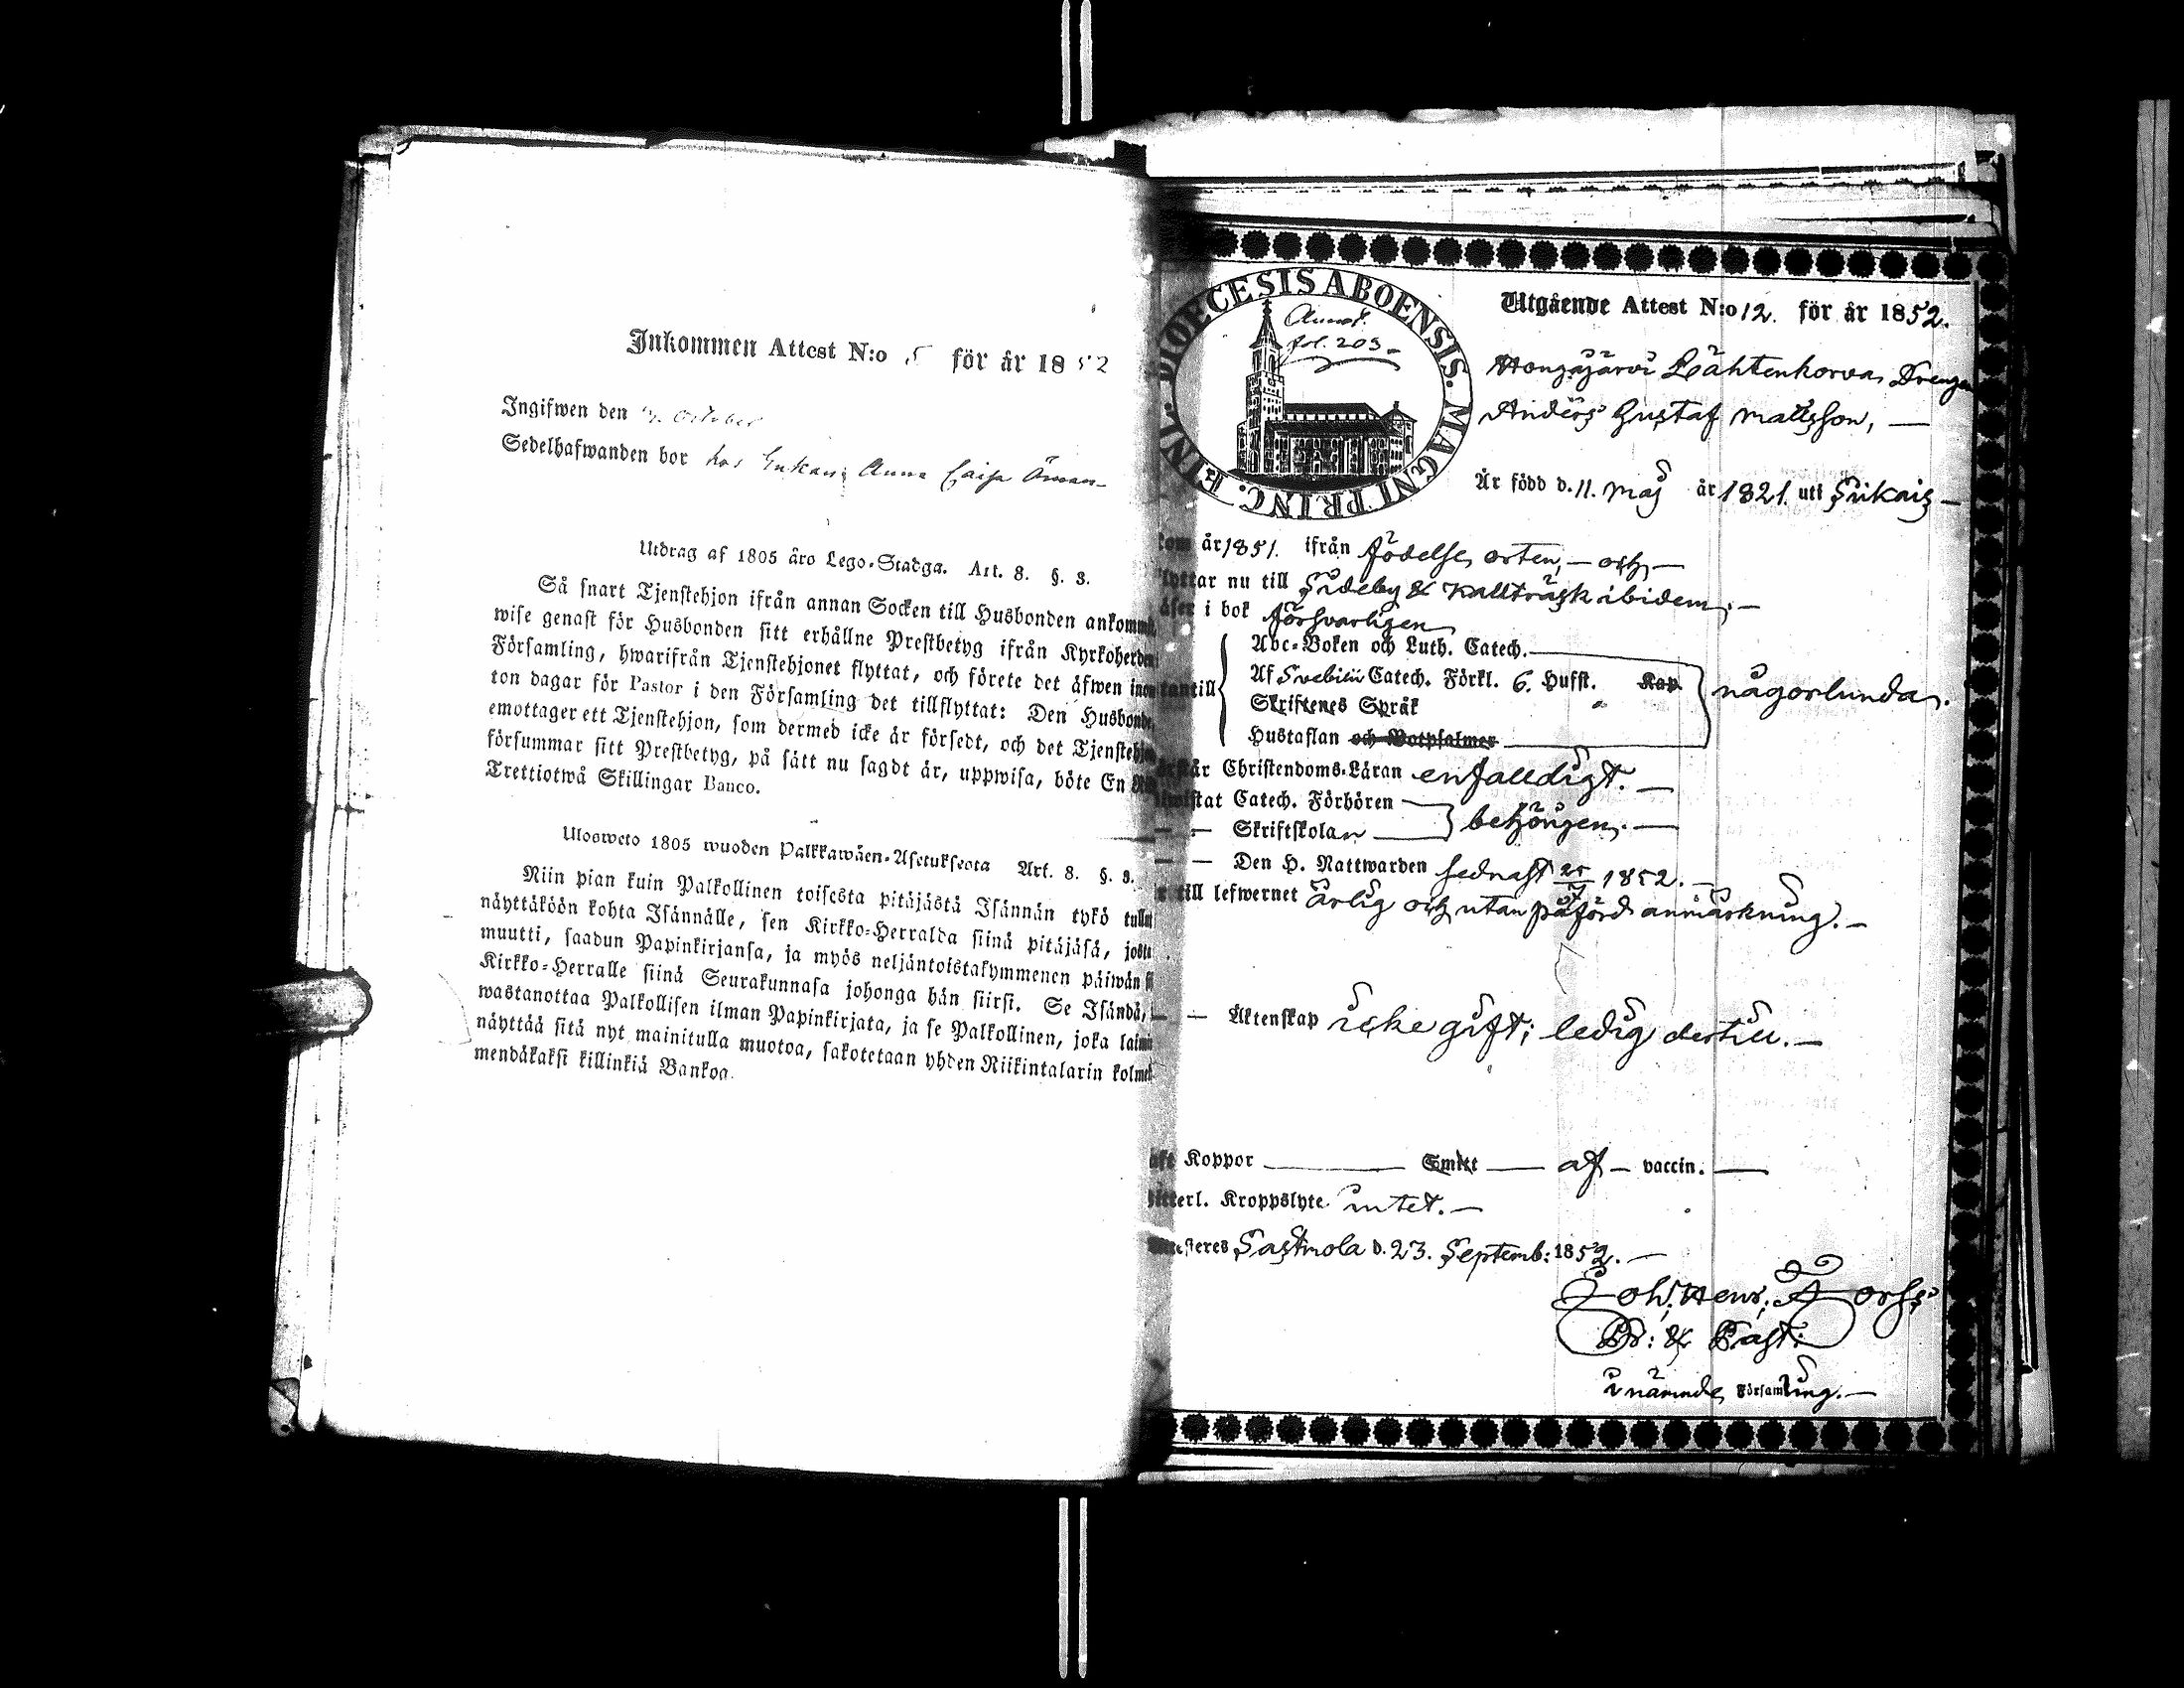 Inkommen Attest N:o 5 för år 1852
Ingifwen den October
Sedelhafwanden bor hos Enkan Anna Caisa Öman
Utdrag af 1805 åro Lego-Stadga. Art. 8. §. 3.
Så snart Tjenstehjon ifrån annan Socken till Husbonden ankommit,
wise genast för Husbonden sitt erhållne Prestbetyg ifrån Kyrkoherden
Församling, hwarifrån Tjenstehjonet flyttat, och förete det äfwen inom
ton dagar för Pastor i den Församling det tillflyttat: Den Husbonde,
emottager ett Tjenstehjon, som dermed icke är försedt, och det Tjenstehjon
försummar sitt Prestbetyg, på sätt nu sagdt är, uppwisa, böte En
Trettiotwå Skillingar Banco.
Ulosweto 1805 wuoden Palkkawäen-Asetuksesta Art. 8. §. 3.
Niin pian kuin Palkollinen toisesta pitäjästä Isännän tykö tullut
näyttäköön kohta Isännälle, sen Kirkko-Herralda siinä pitäjäsä, josta
muutti, saadun Papinkirjansa, ja myös neljäntoistakymmenen päiwän
Kirkko-Herralle siinä Seurakunnasa johonga hän siirsi. Se Isändä,
wastanottaa Palkollisen ilman Papinkirjata, ja se Palkollinen, joka laimin
näyttää sitä nyt mainitulla muotoa, sakotetaan yhden Riikintalarin kolme
mendäkaksi killinkiä Bankoa.
DIOECESIS ABOENSIS. MAGNI PRINC. FINL.
Annot.
fol. 203.
Utgående Attest N:o 12. för år 1852.
Hongajärvi Lähtenkorva Drengen
Anders Gustaf Mattsson, —
Är född d. 11. Maj år 1821. uti Siikais —
kom år 1851. ifrån födelse orten, — och —
flyttar nu till Sideby & Kallträsk ibidem; —
läser i bok försvarligen
Abc-Boken och Luth. Catech. —
utantill Af Svebilii Catech. Förkl. 6. Hufst. Kap någorlunda.
Skriftenes Språk
Hustaflan och Botpsalmer —
förstår Christendoms-Läran enfalldigt. —
bewistat Catech. Förhören —
— — Skriftskolan — behörigen. —
— — Den H. Nattwarden sednast 25/7 1852. —
är till lefwernet ärlig och utan påförd anmärkning. —
— — Äktenskap icke gift; ledig dertill. —
haft Koppor — Smitt — af — vaccin. —
ytterl. Kroppslyte intet. —
attesteres Sastmola d. 23. Septemb: 1852. —
Joh. Henr. Forss
Pr: & Past:
i nämnde Församling. —